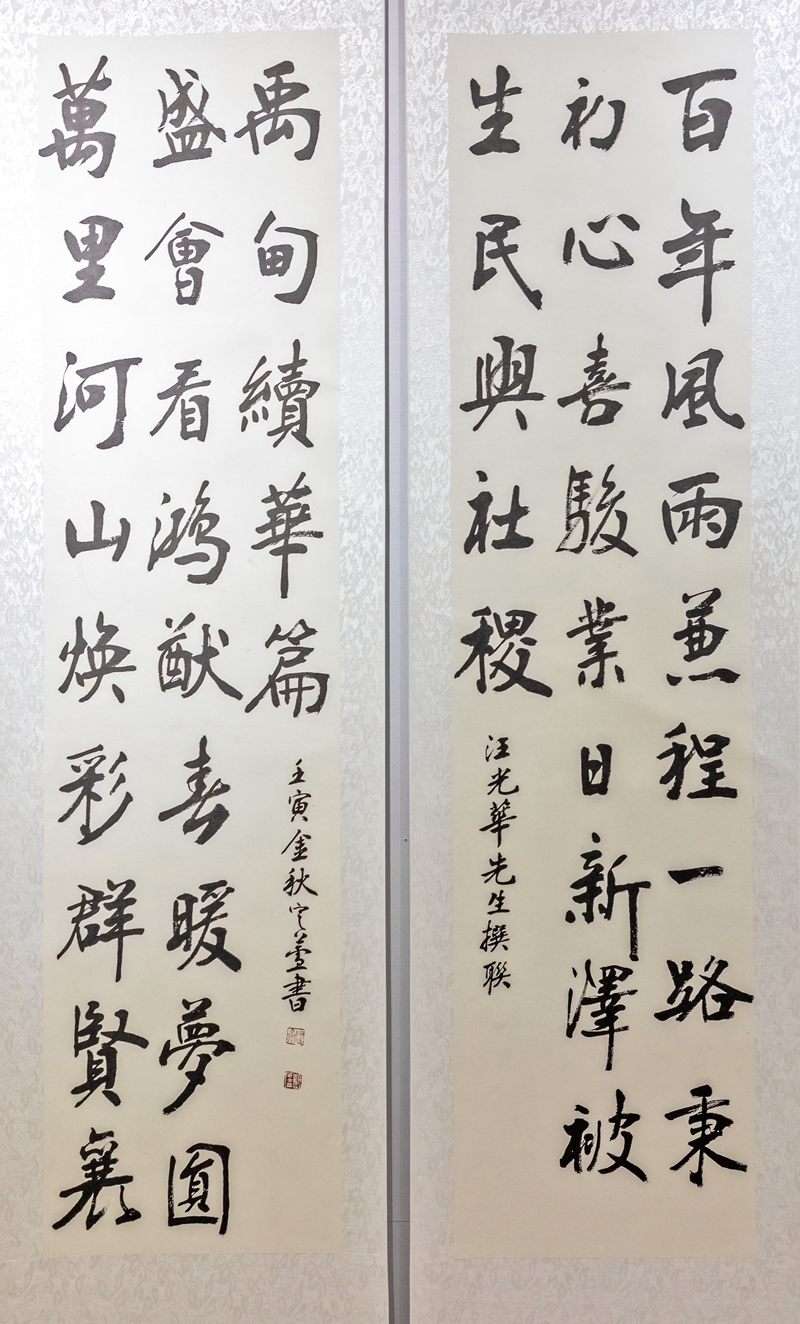 百年風雨兼程一路秉
初心喜駿業日新澤被
生民興社稷
汪光華先生撰联
萬里河山煥彩群賢襄
盛會看鴻猷春暖夢圓
禹甸續華篇
壬寅金秋書